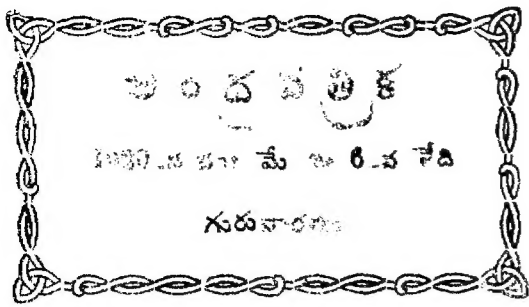 ఆంధ్రపత్రిక
మే 6-వ తేది
గురువారము